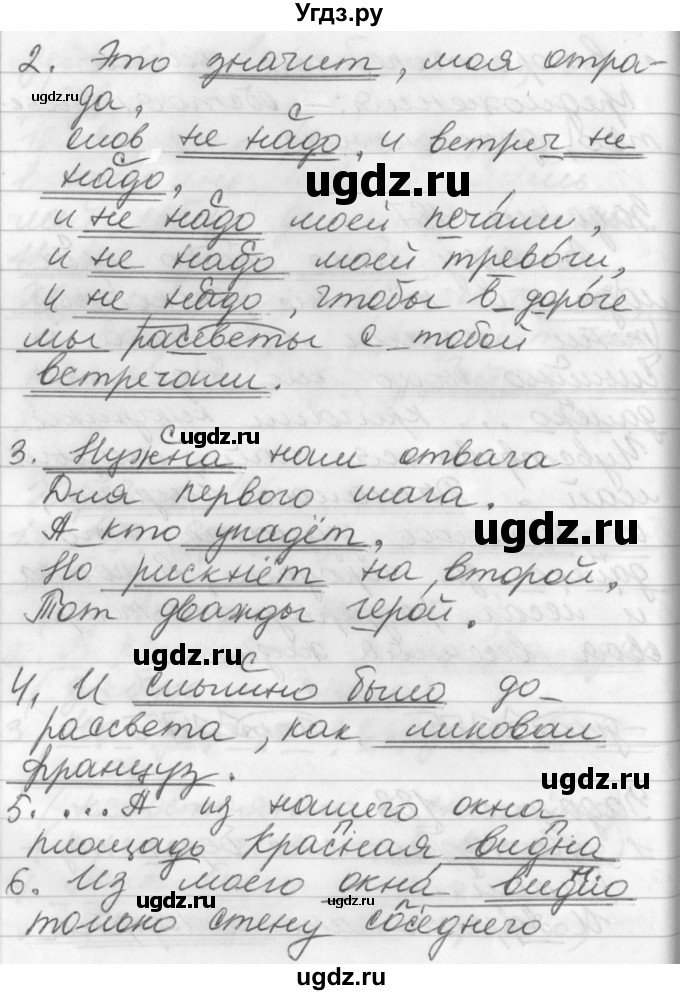 Угдз.ру
2. Это значит, моя отра-
да,
слов не надо, и встреч не
надо,
и не надо моей печали,
и не надо моей тревоги,
и не надо, чтобы в дороге
мы рассветы с тобой
встречали.
3. Нужна нам отвага
Для первого шага.
А кто упадёт,
Но рискнёт на второй,
Тот дважды герой.
4. И слышно было до
рассвета, как ликовал
француз.
5. ... А из нашего окна
площадь Красная видна
6. Из моего окна видно
только стену соседнего
ugdz.ru
ugdz.ru
ugdz.ru
ugdz.ru
ugdz.ru
ugdz.ru
ugdz.ru
ugdz.ru
ugdz.ru
ugdz.ru